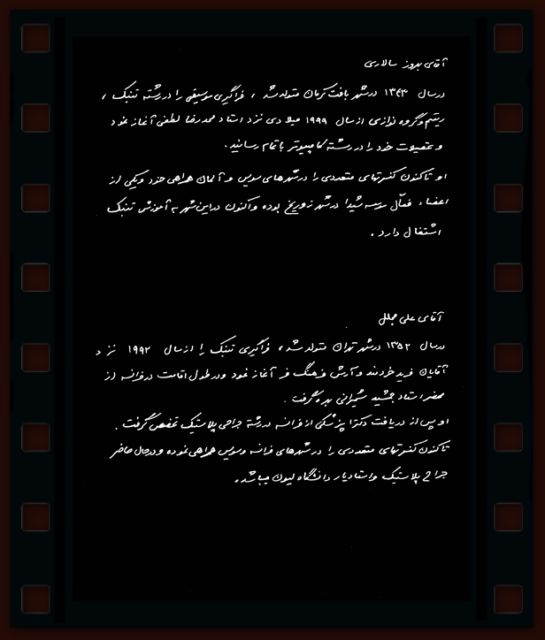 آقای بهروز سالاری
درسال ۱۳۴۳ درشهر بافت کرمان متولد شد ، فراگیری موسیقی را دررشته تنبک ،
ریتم وگروه نوازی ازسال ۱۹۹۹ میلادی نزد استاد محمدرضا لطفی آغاز نمود
و تحصیلات خود را در رشته کامپیوتر باتمام رسانید .
او تاکنون کنسرتهای متعددی را درشهرهای سویس و آلمان همراهی نمود ویکی از
اعضاء فعال مدرسه شیدا درشهر زوریخ بوده واکنون دراین شهر به آموزش تنبک
اشتغال دارد .
آقای علی مجلل
درسال ۱۳۵۲ درشهر تهران متولد شد ، فراگیری تنبک را ازسال ۱۹۹۲ نزد
آقایان فرید خردمند وآرش فرهنگ فر آغاز نمود ودرطول اقامت درفرانسه از
محضر استاد جمشید شمیرانی بهره گرفت .
او پس از دریافت دکترا پزشکی ازفرانسه دررشته جراحی پلاستیک تخصص گرفت .
تاکنون کنسرتهای متعددی را درشهرهای فرانسه وسویس همراهی نموده ودرحال حاضر
جراح پلاستیک واستادیار دانشگاه لیون میباشد .